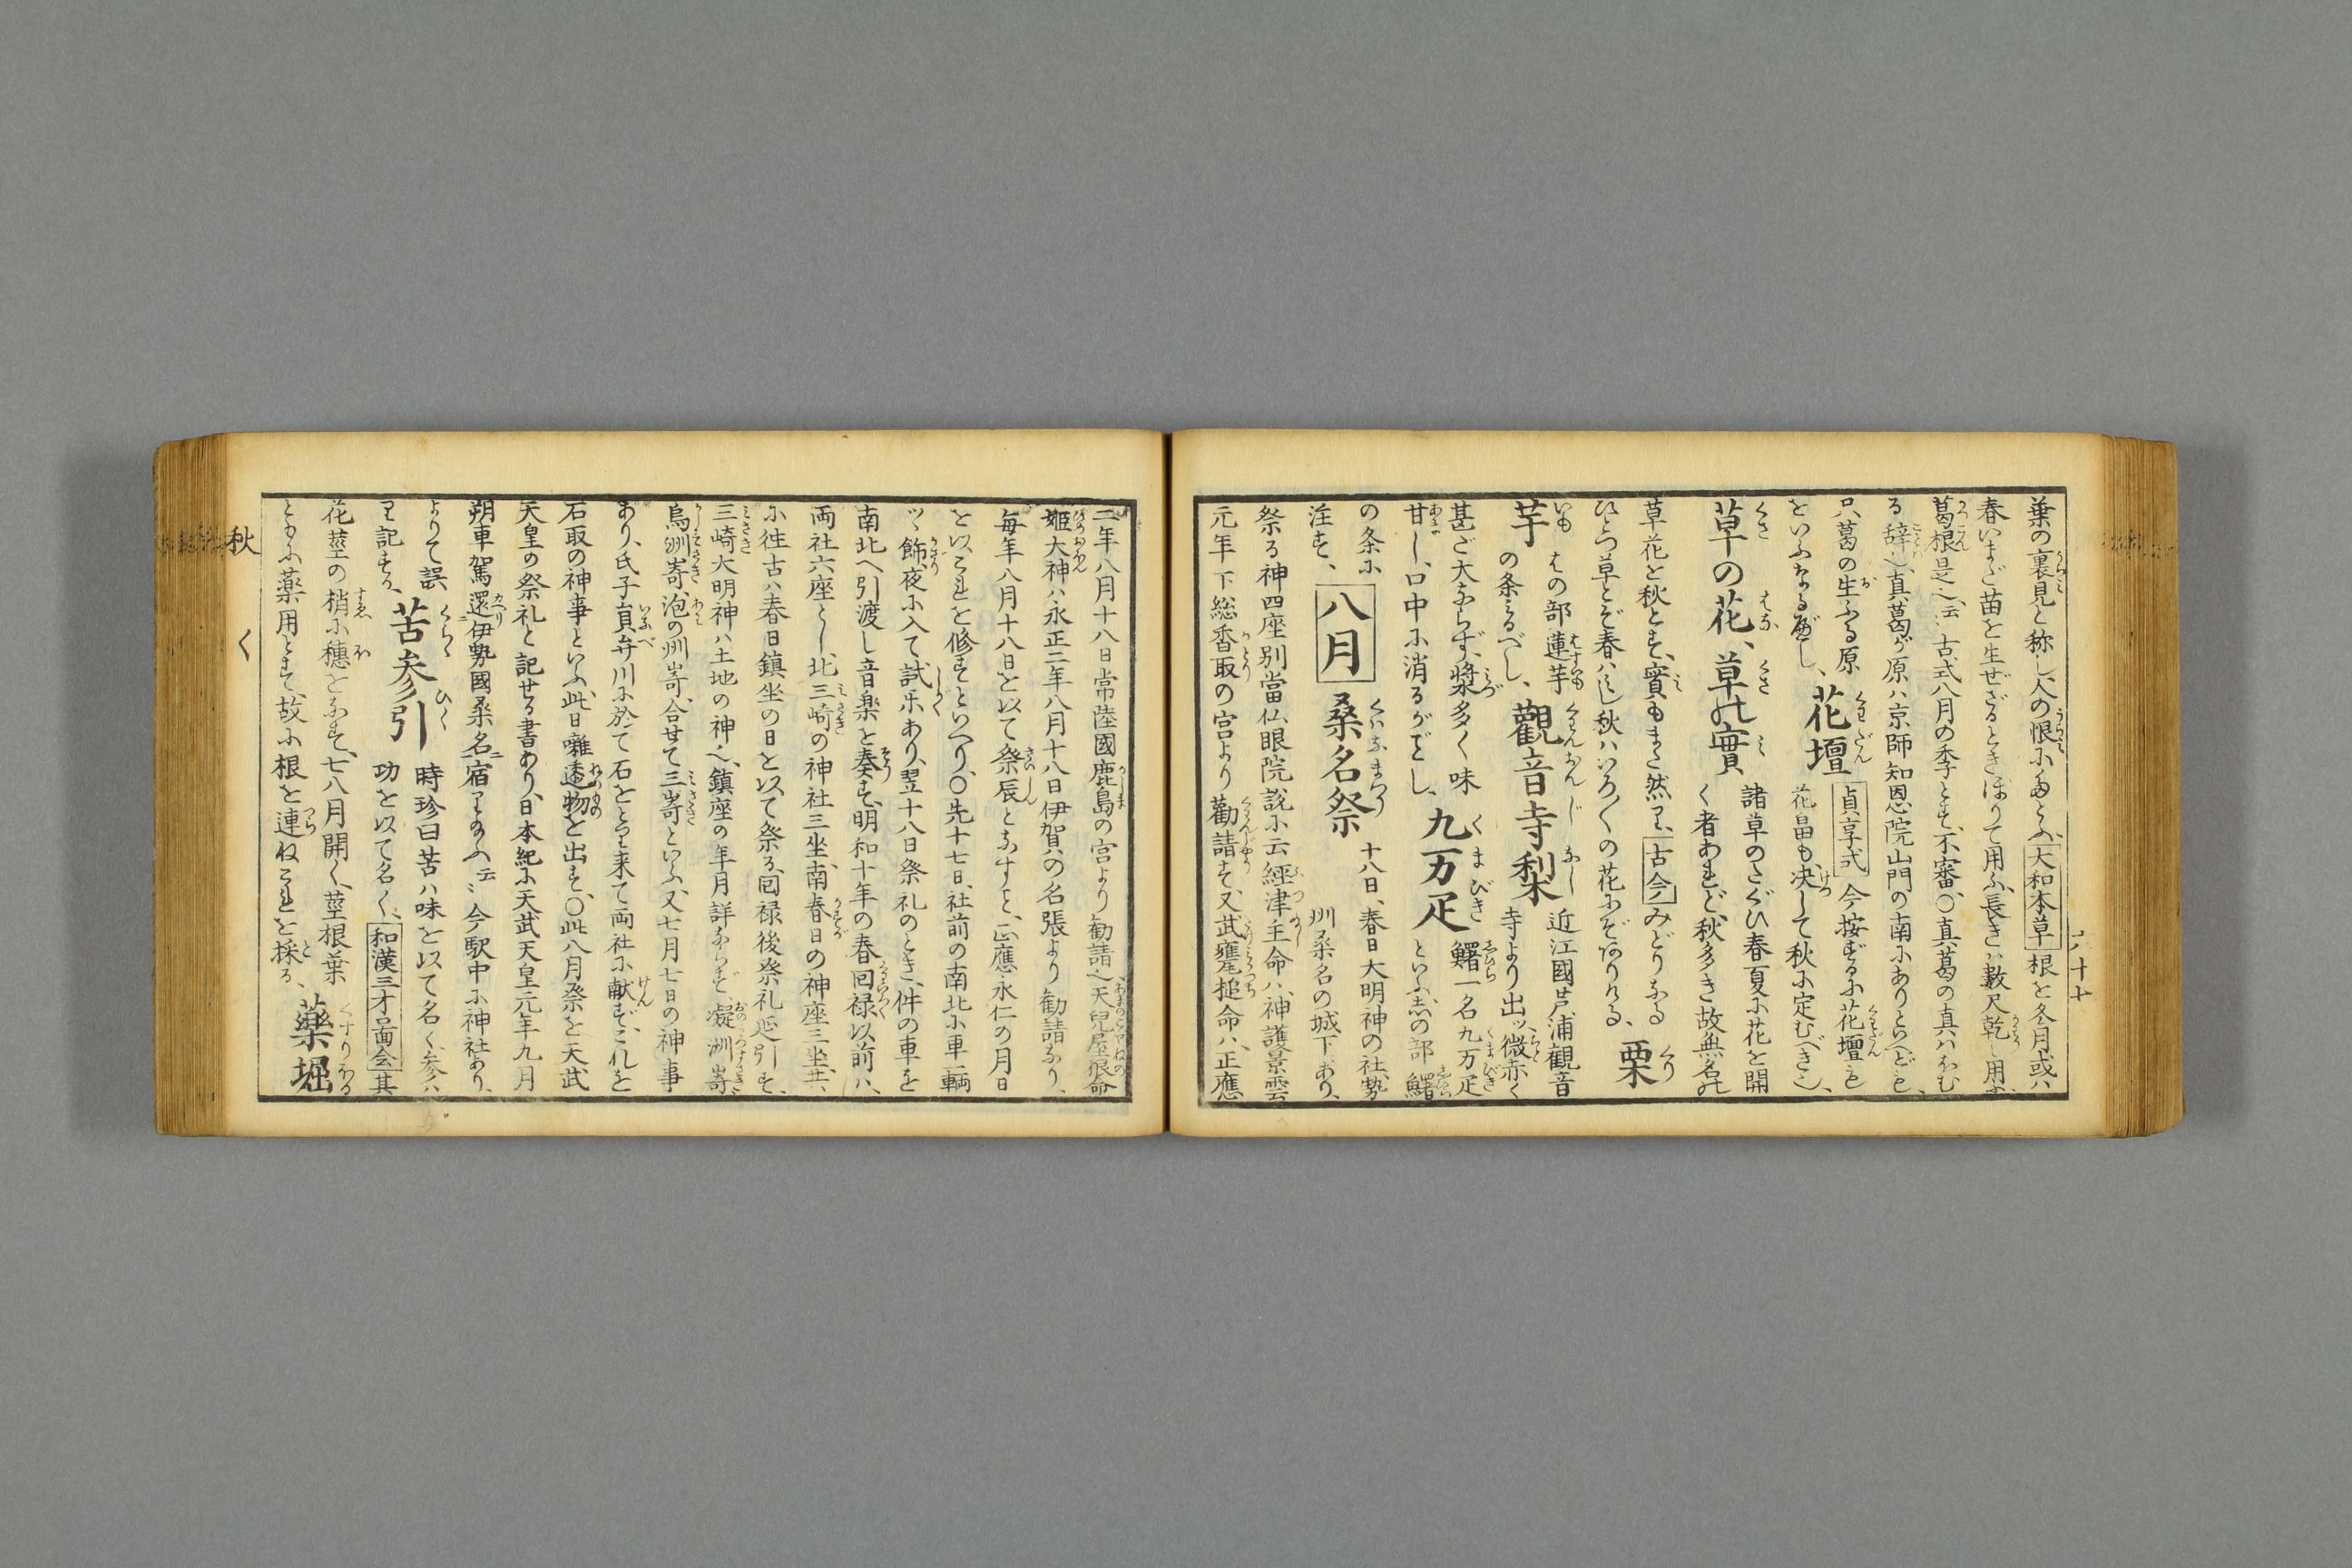 葉の裏見と称し人の恨にかよふ、大和本草根を冬月或ハ
春いまだ苗を生ぜざるときほりて用ふ、長きハ数尺乾し用ふ
葛根是也、云々古式八月の季とす、不審、○真葛の真ハほむ
る辞也、真葛が原ハ京師知恩院山門の南にありといへども、
只、葛の生ふる原
をいふなるべし、
花壇
貞享式今按ずるに花壇も
花畠も、决して秋に定むべき也、
草の花、草の實
諸草のたぐひ春夏に花を開
く者あれど、秋多き故無名の
草花を秋とす、實もまた然り、古今みどりなる
ひとつ草とぞ春ハ見し秋ハいろ〳〵の花にぞありける、
栗
芋
はの部蓮芋
の条みるべし、
觀音寺梨
近江國芦浦観音
寺より出ッ、微赤く
甚ご大ならず、漿多く味
甘し、口中に消るがごとし、
九万疋
鱪一名九万疋
といふ、志の部鱪
の条に
注す、
八月
桑名祭
十八日、春日大明神の社、勢
州桑名の城下にあり、
祭る神四座別當仏眼院説に云經津主命ハ、神護景雲
元年下総香取の宮より勸請す、又武甕槌命ハ、正應
二年八月十八日常陸國鹿島の宮より勧請也、天兒屋根命
姫大神ハ永正二年八月十八日伊賀の名張より勧請なり、
毎年八月十八日を以て祭辰となすこと、正應永仁の月日
を以、これを修すといへり、○先十七日、社前の南北に車一輌
ッヽ飾、夜に入て試乐あり、翌十八日祭礼のとき、件の車を
南北へ引渡し音楽を奏す、明和十年の春回禄以前ハ、
両社六座とし、北、三崎の神社三坐、南、春日の神座三坐、共、
に徃古ハ春日鎮坐の日を以て祭る、回禄後祭礼延引す、
三崎大明神ハ土地の神也、鎮座の年月詳ならず、凝洲嵜
烏洲嵜、泡の州嵜、合せて三嵜といふ、又七月七日の神事
あり、氏子員弁川に於て石をとり来て両社に献ず、これを
石取の神事といふ、此日囃透物を出す、○此八月祭を天武
天皇の祭礼と記せる書あり、日本紀に天武天皇元年九月
朔車駕還伊勢國桑名ニ宿りたまふ云々今駅中に神社あり、
よりて誤
り記する、
苦参引
時珍曰苦ハ味を以て名く、参ハ
功を以て名く、和漢三才圖会其
花莖の梢に穗をなす、七八月開く、莖根葉
ともに薬用とす、故に根を連ねこれを採る、
藥堀
秋
く
八十七